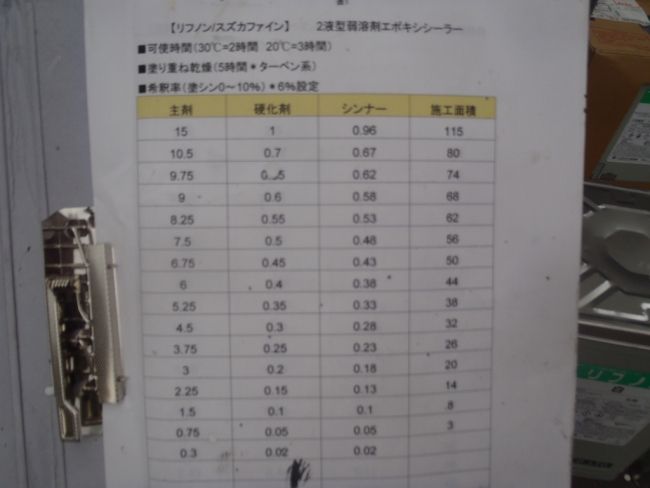 【リフノン/スズカファイン】 2液型弱溶剤エポキシシーラー
■可使時間(30℃=2時間 20℃=3時間)
■塗り重ね乾燥(5時間*ターペン系)
■希釈率(塗シン0~10%)*6%設定
主剤 硬化剤 シンナー 施工面積
15 1 0.96 115
10.5 0.7 0.67 80
9.75 0.62 74
9 0.6 0.58 68
8.25 0.55 0.53 62
7.5 0.5 0.48 56
6.75 0.45 0.43 50
6 0.4 0.38 44
5.25 0.35 0.33 38
4.5 0.3 0.28 32
3.75 0.25 0.23 26
3 0.2 0.18 20
2.25 0.15 0.13 14
1.5 0.1 0.1 8
0.75 0.05 0.05 3
0.3 0.02 0.02
リフノ